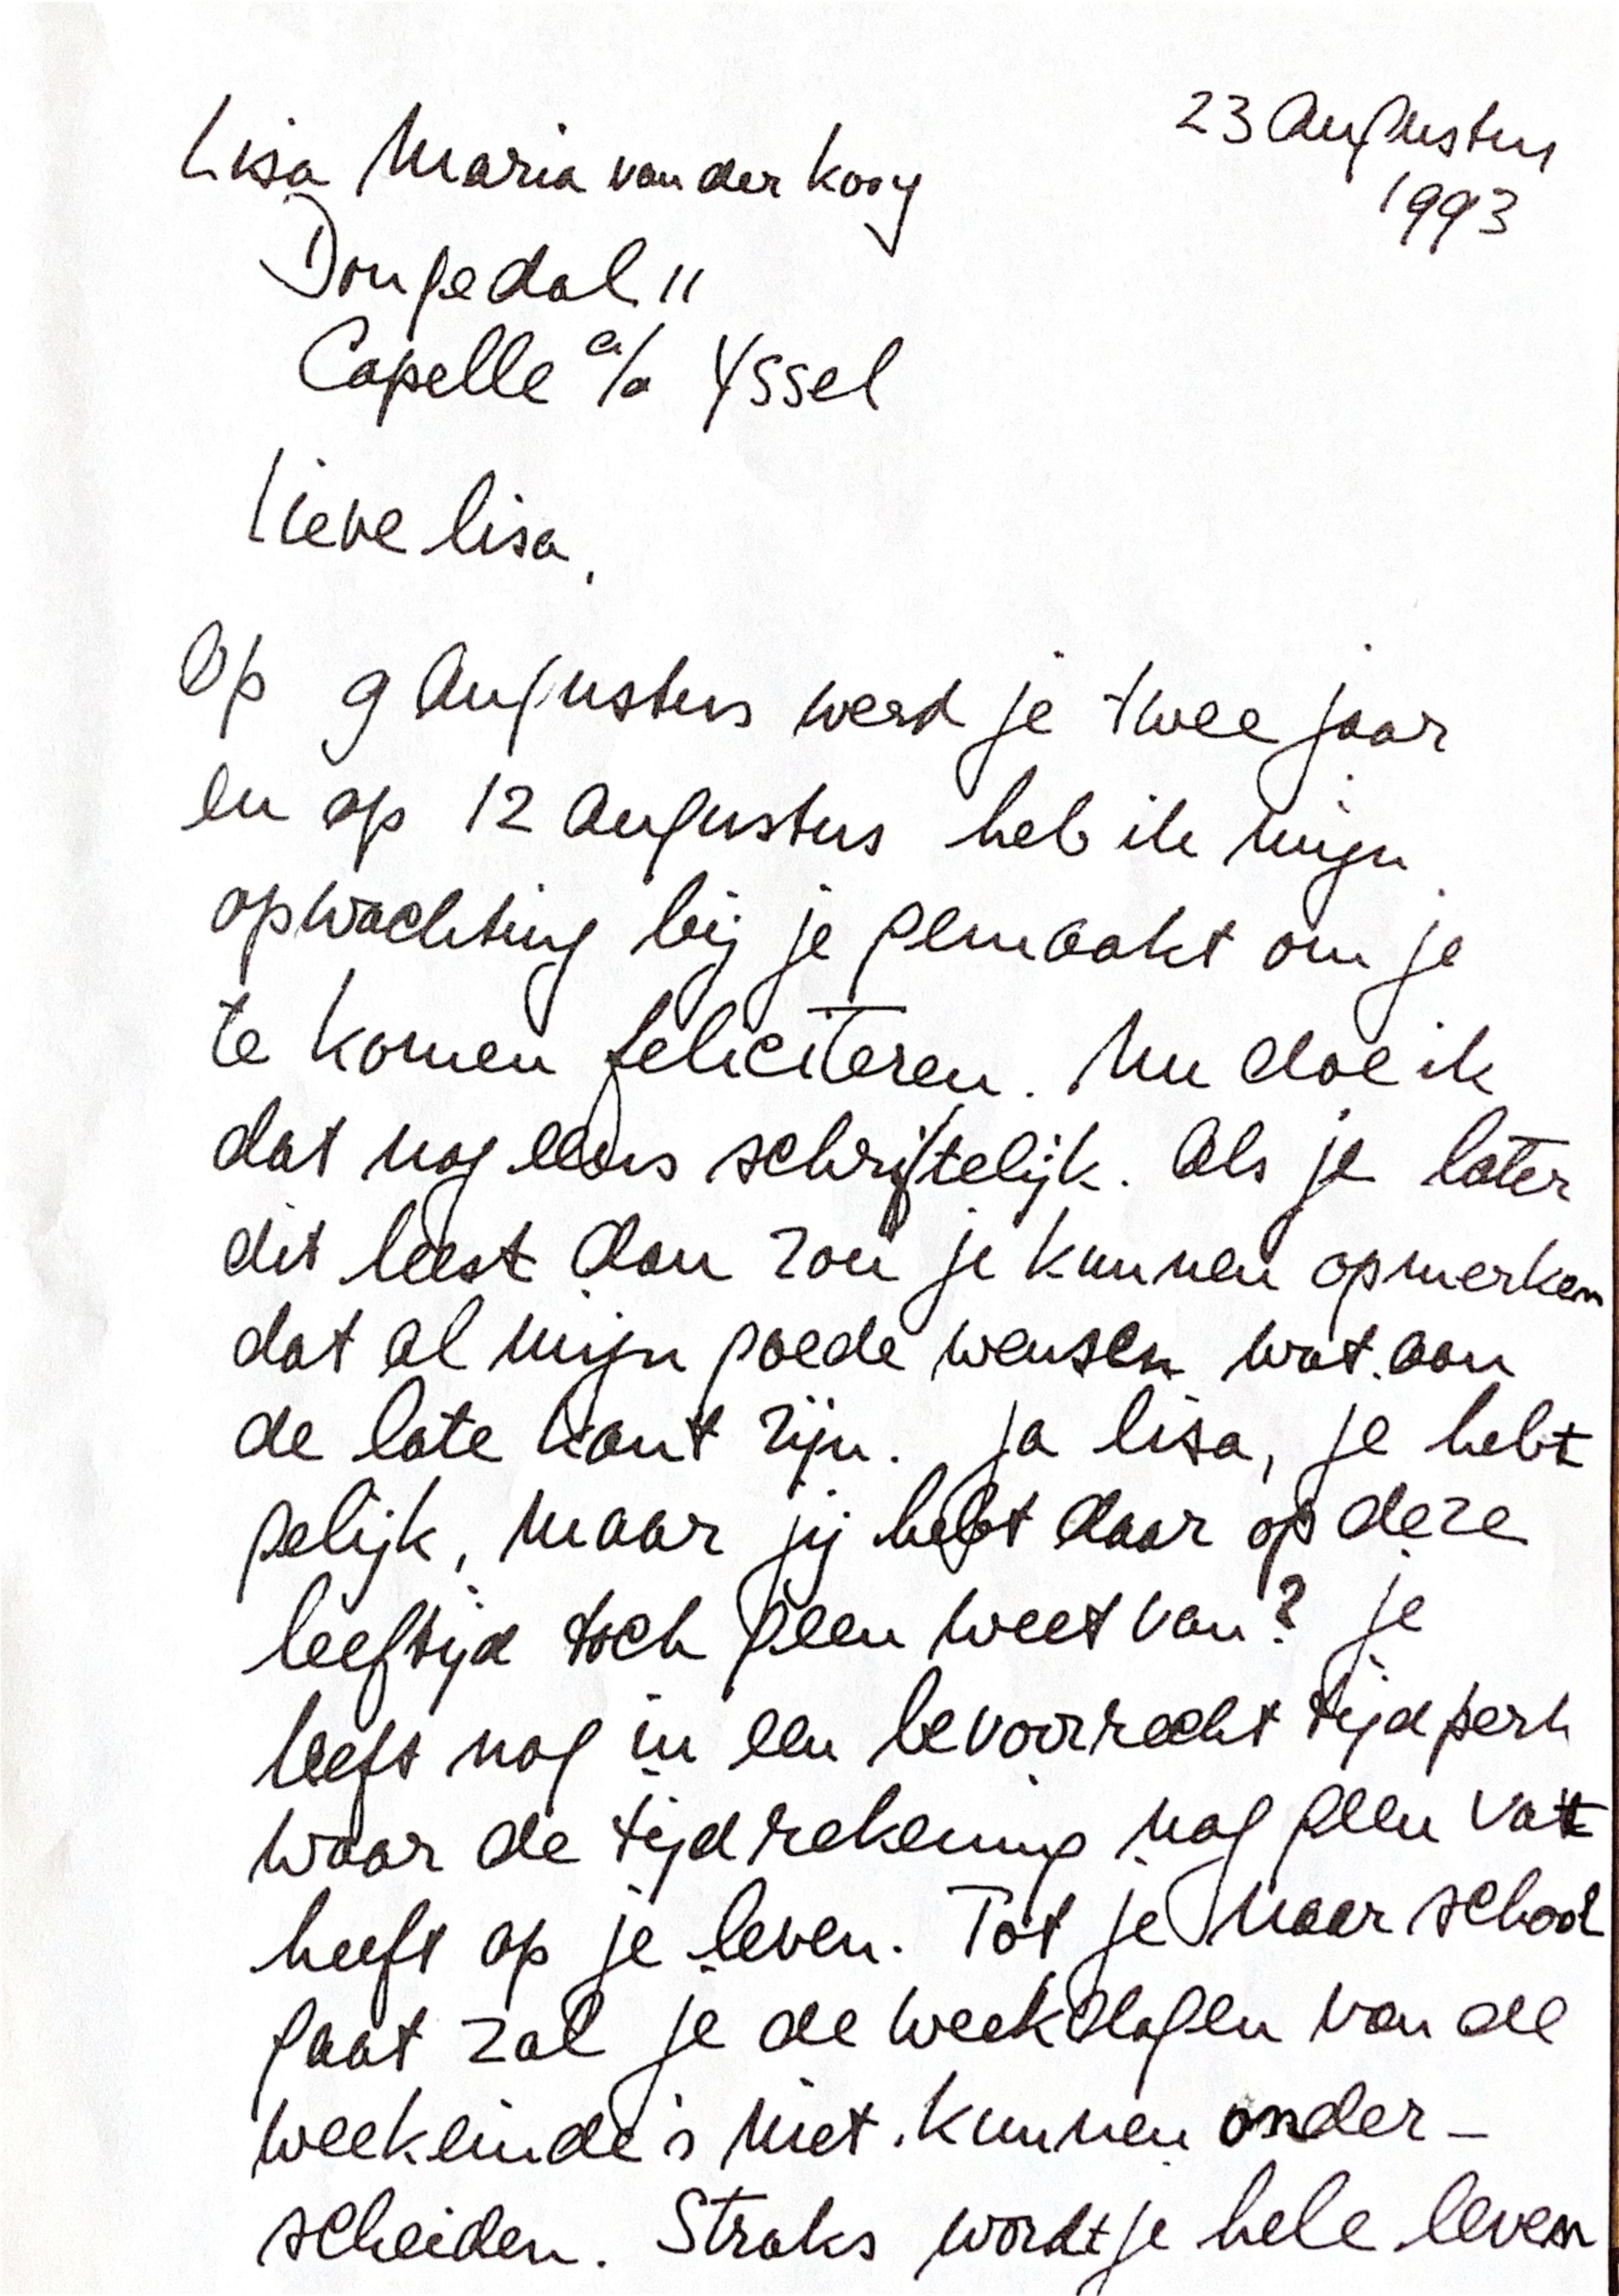 23 Augustus
1993
Lisa Maria van der Kooy
Dongedal 11
Capelle a/a Yssel
Lieve Lisa,
Op 9 Augustus werd je twee jaar
en op 12 Augustus heb ik mijn
opwachting bij je gemaakt om je
te komen feliciteren. Nu doe ik
dat nog eens schriftelijk. Als je later
dit leest dan zou je kunnen opmerken
dat al mijn goede wensen wat aan
de late kant zijn. Ja Lisa, je hebt
gelijk, maar jij hebt daar op deze
leeftijd toch geen weet van? Je
leeft nog in een bevoorrecht tijdperk
waar de tijdrekening nog geen vat
heeft op je leven. Tot je naar school
gaat zal je de weekdagen van de
weekeinde's niet kunnen onder-
scheiden. Straks wordt je hele leven